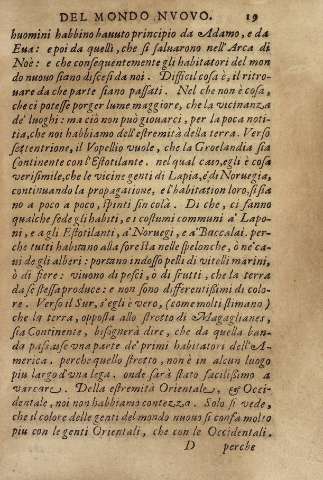 DEL MONDO NVOVO. 19
huomini habbino hauuto principio da Adamo, e da
Eua: e poi da quelli, che si saluarono nell'Arca di
Noè: e che consequentemente gli habitatori del mon
do nuouo siano discesi da noi. Difficil cosa è, il ritro-
uare da che parte siano passati. Nel che non è cosa,
che ci potesse porger lume maggiore, che la vicinanza
de' luoghi: ma ciò non può giouarci, per la poca noti-
tia, che noi habbiamo dell'estremità della terra. Verso
settentrione, il Vopellio vuole, che la Groelandia sia
continente con l'Estotilante. nel qual caso, egli è cosa
verisimile, che le vicine genti di Lapia, e di Noruegia,
continuando la propagatione, e l'habitation loro, si sia
no a poco a poco, spinti sin colà. Di che, ci fanno
qualche fede gli habiti, e i costumi communi a' Lapo-
ni, e a gli Estotilanti, a' Noruegi, e a' Baccalai. per-
che tutti habitano alla foresta nelle spelonche, ò ne' ca-
ui de gli alberi: portano indosso pelli di vitelli marini,
ò di fiere: viuono di pesci, ò di frutti, che la terra
da se stessa produce: e non sono differentissimi di colo-
re. Verso il Sur, s'egli è vero, (come molti stimano)
che la terra, opposta allo stretto di Magaglianes,
sia Continente, bisognerà dire, che da quella ban-
da passasse vna parte de' primi habitatori dell'A-
merica. perche quello stretto, non è in alcun luogo
piu largo d'vna lega. onde sarà stato facilissimo a
varcare. Della estremità Orientale, & Occi-
dentale, noi non habbiamo contezza. Solo si vede,
che il colore delle genti del mondo nuouo si confa molto
piu con le genti Orientali, che con le Occidentali.
D perche